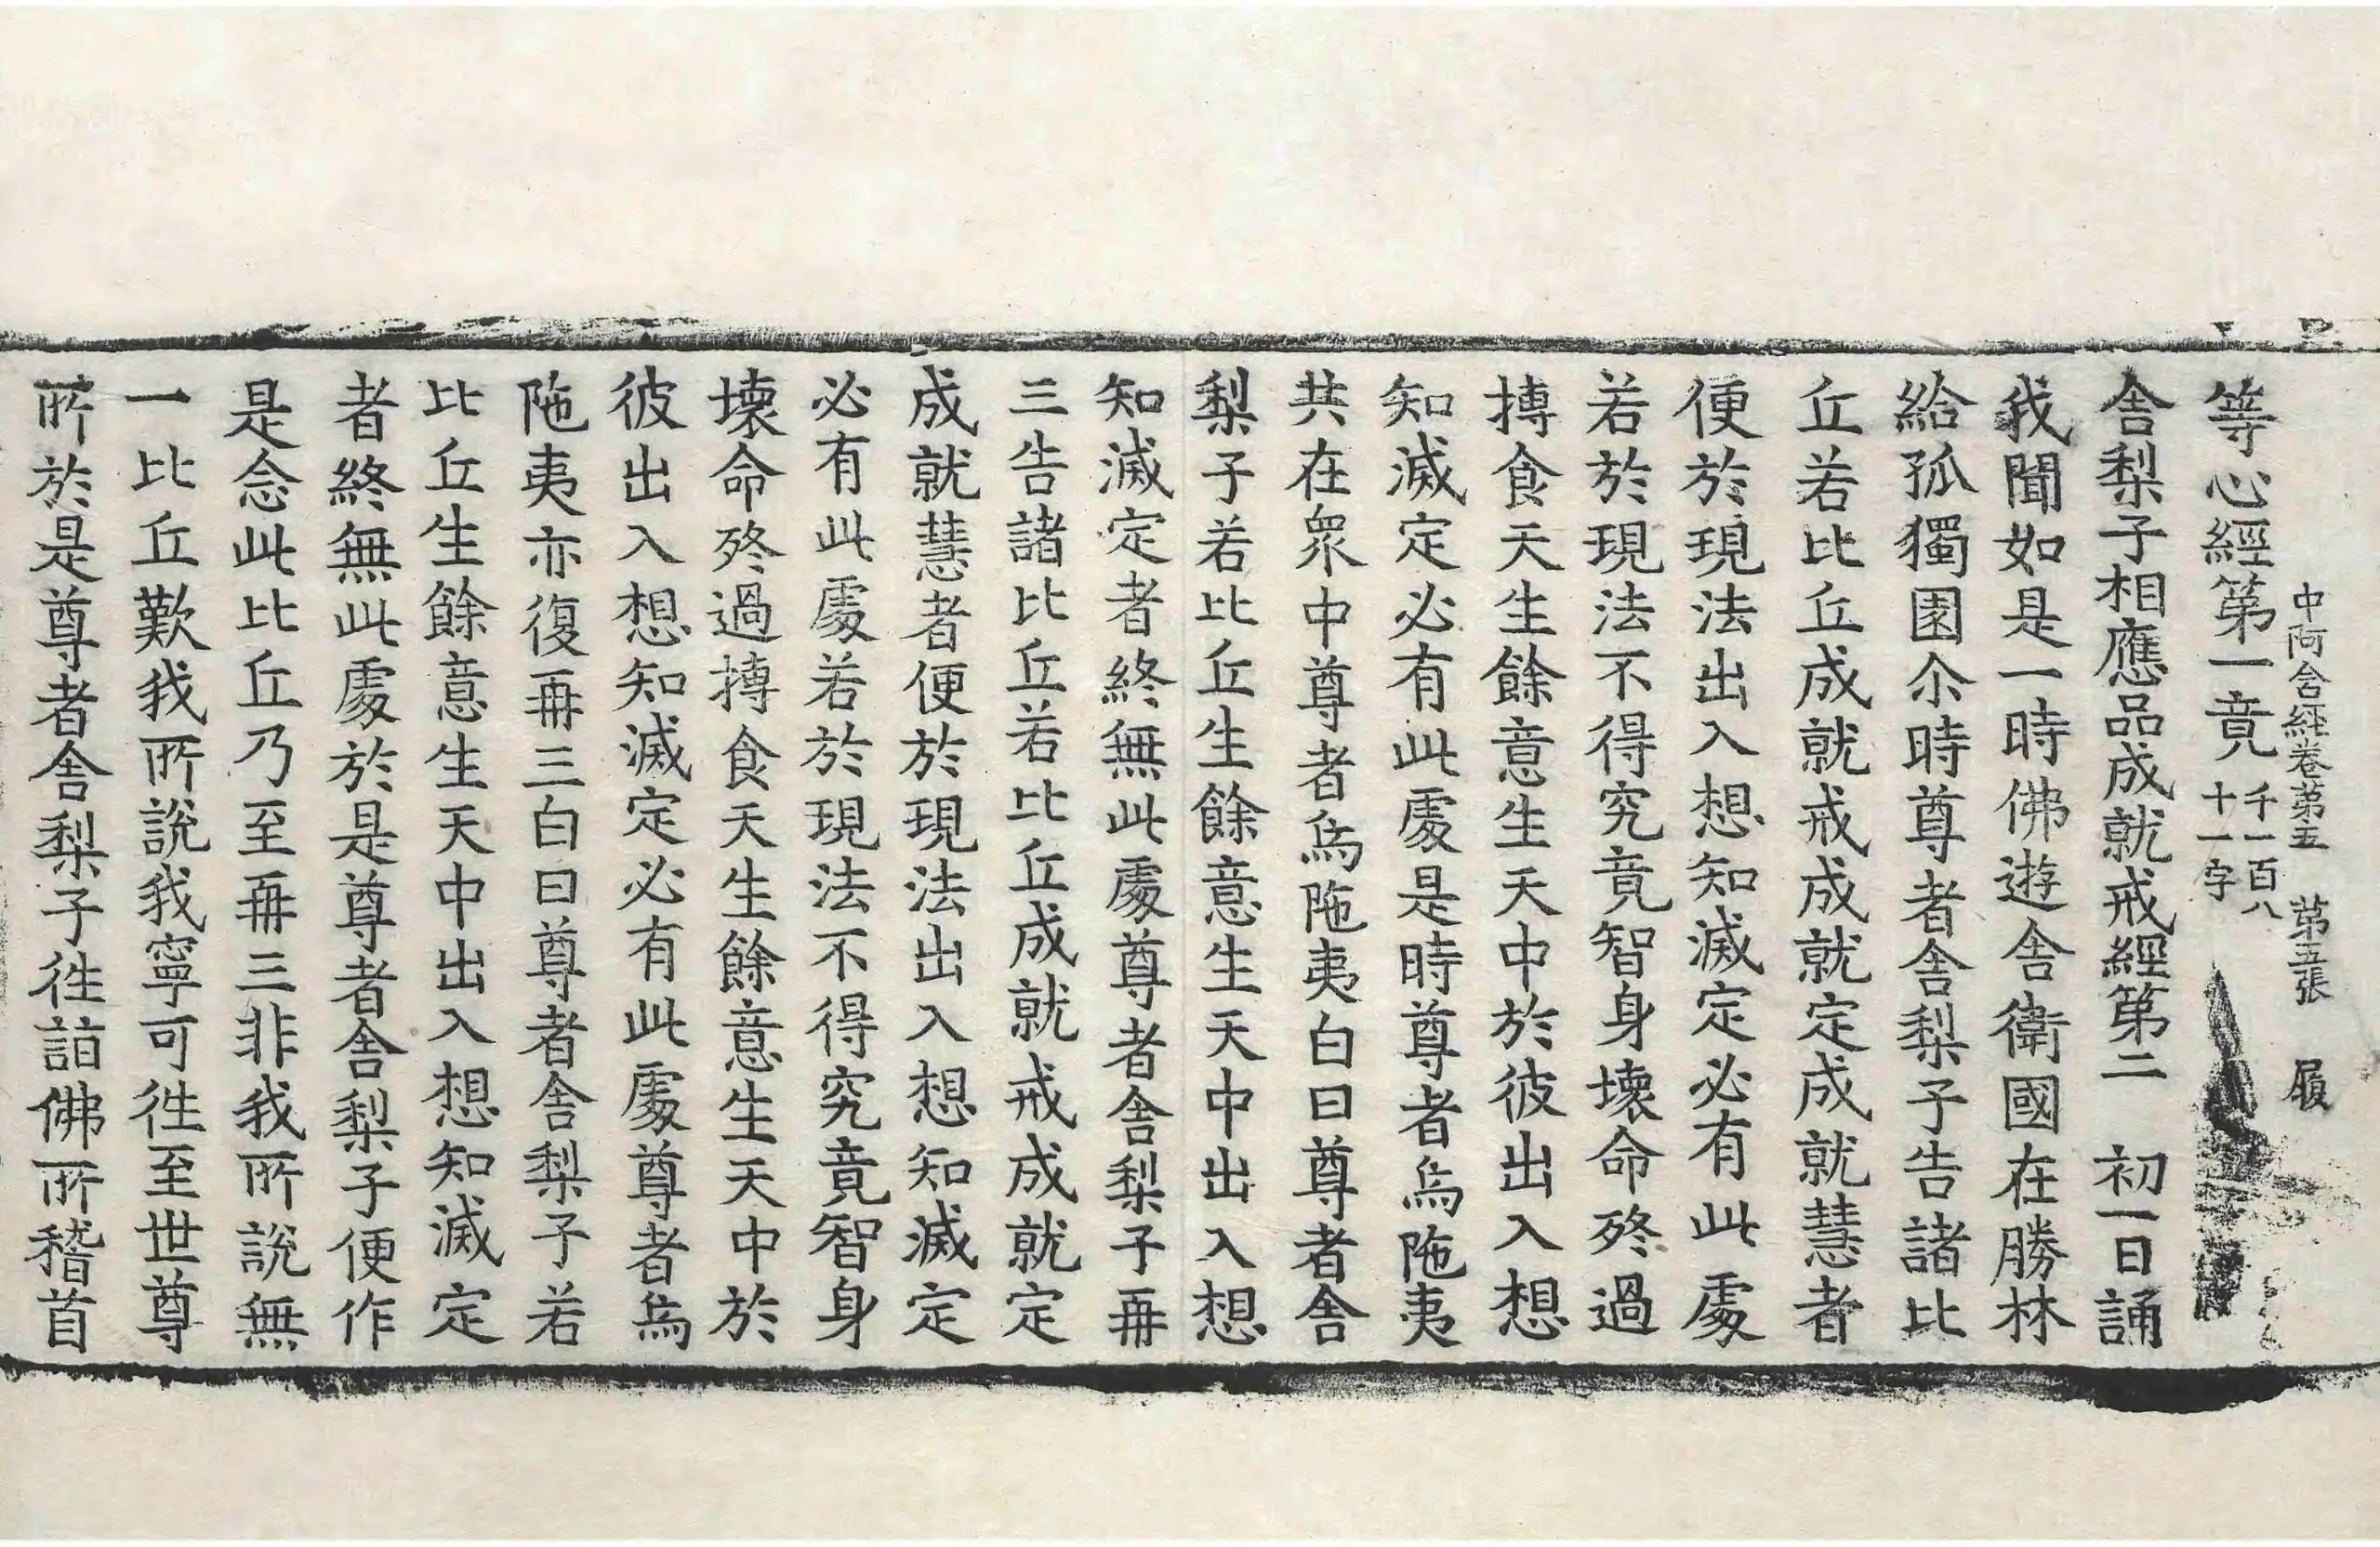 中阿含經卷第五 第五張 履
等心經第一竟 千一百八十一字
舎梨子相應品成就戒經第二 初一日誦
我聞如是一時佛遊舎衛國在勝林
給孤獨園尒時尊者舎梨子告諸比
丘若比丘成就戒成就定成就慧者
便於現法出入想知滅定必有此處
若於現法不得究竟智身壞命終過
摶食天生餘意生天中於彼出入想
知滅定必有此處是時尊者烏陁夷
共在衆中尊者烏陁夷白曰尊者舎
梨子若比丘生餘意生天中出入想
知滅定者終無此處尊者舎梨子再
三告諸比丘若比丘成就戒成就定
成就慧者便於現法出入想知滅定
必有此處若於現法不得究竟智身
壞命終過摶食天生餘意生天中於
彼出入想知滅定必有此處尊者烏
陁夷亦復再三白曰尊者舎梨子若
比丘生餘意生天中出入想知滅定
者終無此處於是尊者舎梨子便作
是念此比丘乃至再三非我所說無
一比丘歎我所說我寧可往至世尊
所於是尊者舎梨子往詣佛所稽首